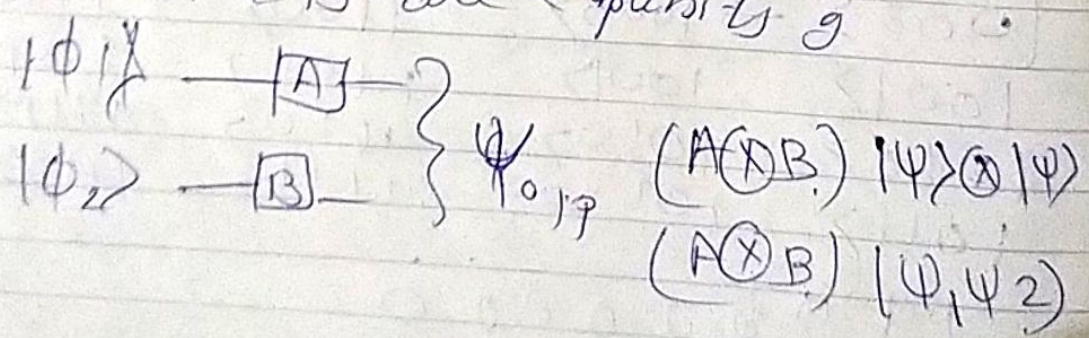 |ϕ1⟩ —[A]— }
|ϕ2⟩ —[B]— } ψo/p (A⊗B) |ψ⟩⊗|ψ⟩
(A⊗B) |ψ1ψ2)